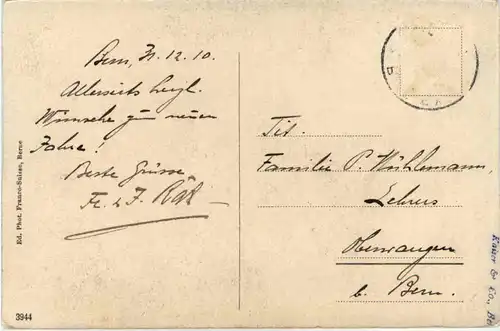 Bern, 31.12.10.
Allerseits herzl.
Wünsche zum neuen
Jahre!
Beste Grüsse
Fr. & F.
Tit.
Familie P. Wühlemann,
Lehrers
Oberwangen
b. Bern.
Ed. Phot. Franco-Suisse, Berne
3944
& Co., Be